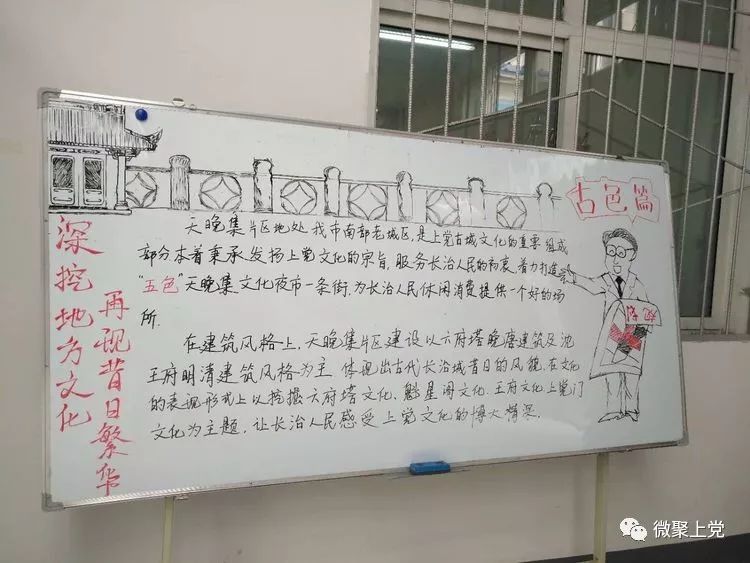 古色篇
深挖地方文化
再现昔日繁华
天晚集片区地处我市南部老城区,是上党古城文化的重要组成
部分本着秉承发扬上党文化的宗旨,服务长治人民的初衷,着力打造
"五色"天晚集文化夜市一条街,为长治人民休闲消费提供一个好的场
所.
在建筑风格上,天晚集片区建设以六府塔晚唐建筑及沈
王府明清建筑风格为主 体现出古代长治城昔日的风貌,在文化
的表现形式上以挖掘六府塔文化,魁星阁文化,王府文化上党门
文化为主题,让长治人民感受上党文化的博大精深.
微聚上党